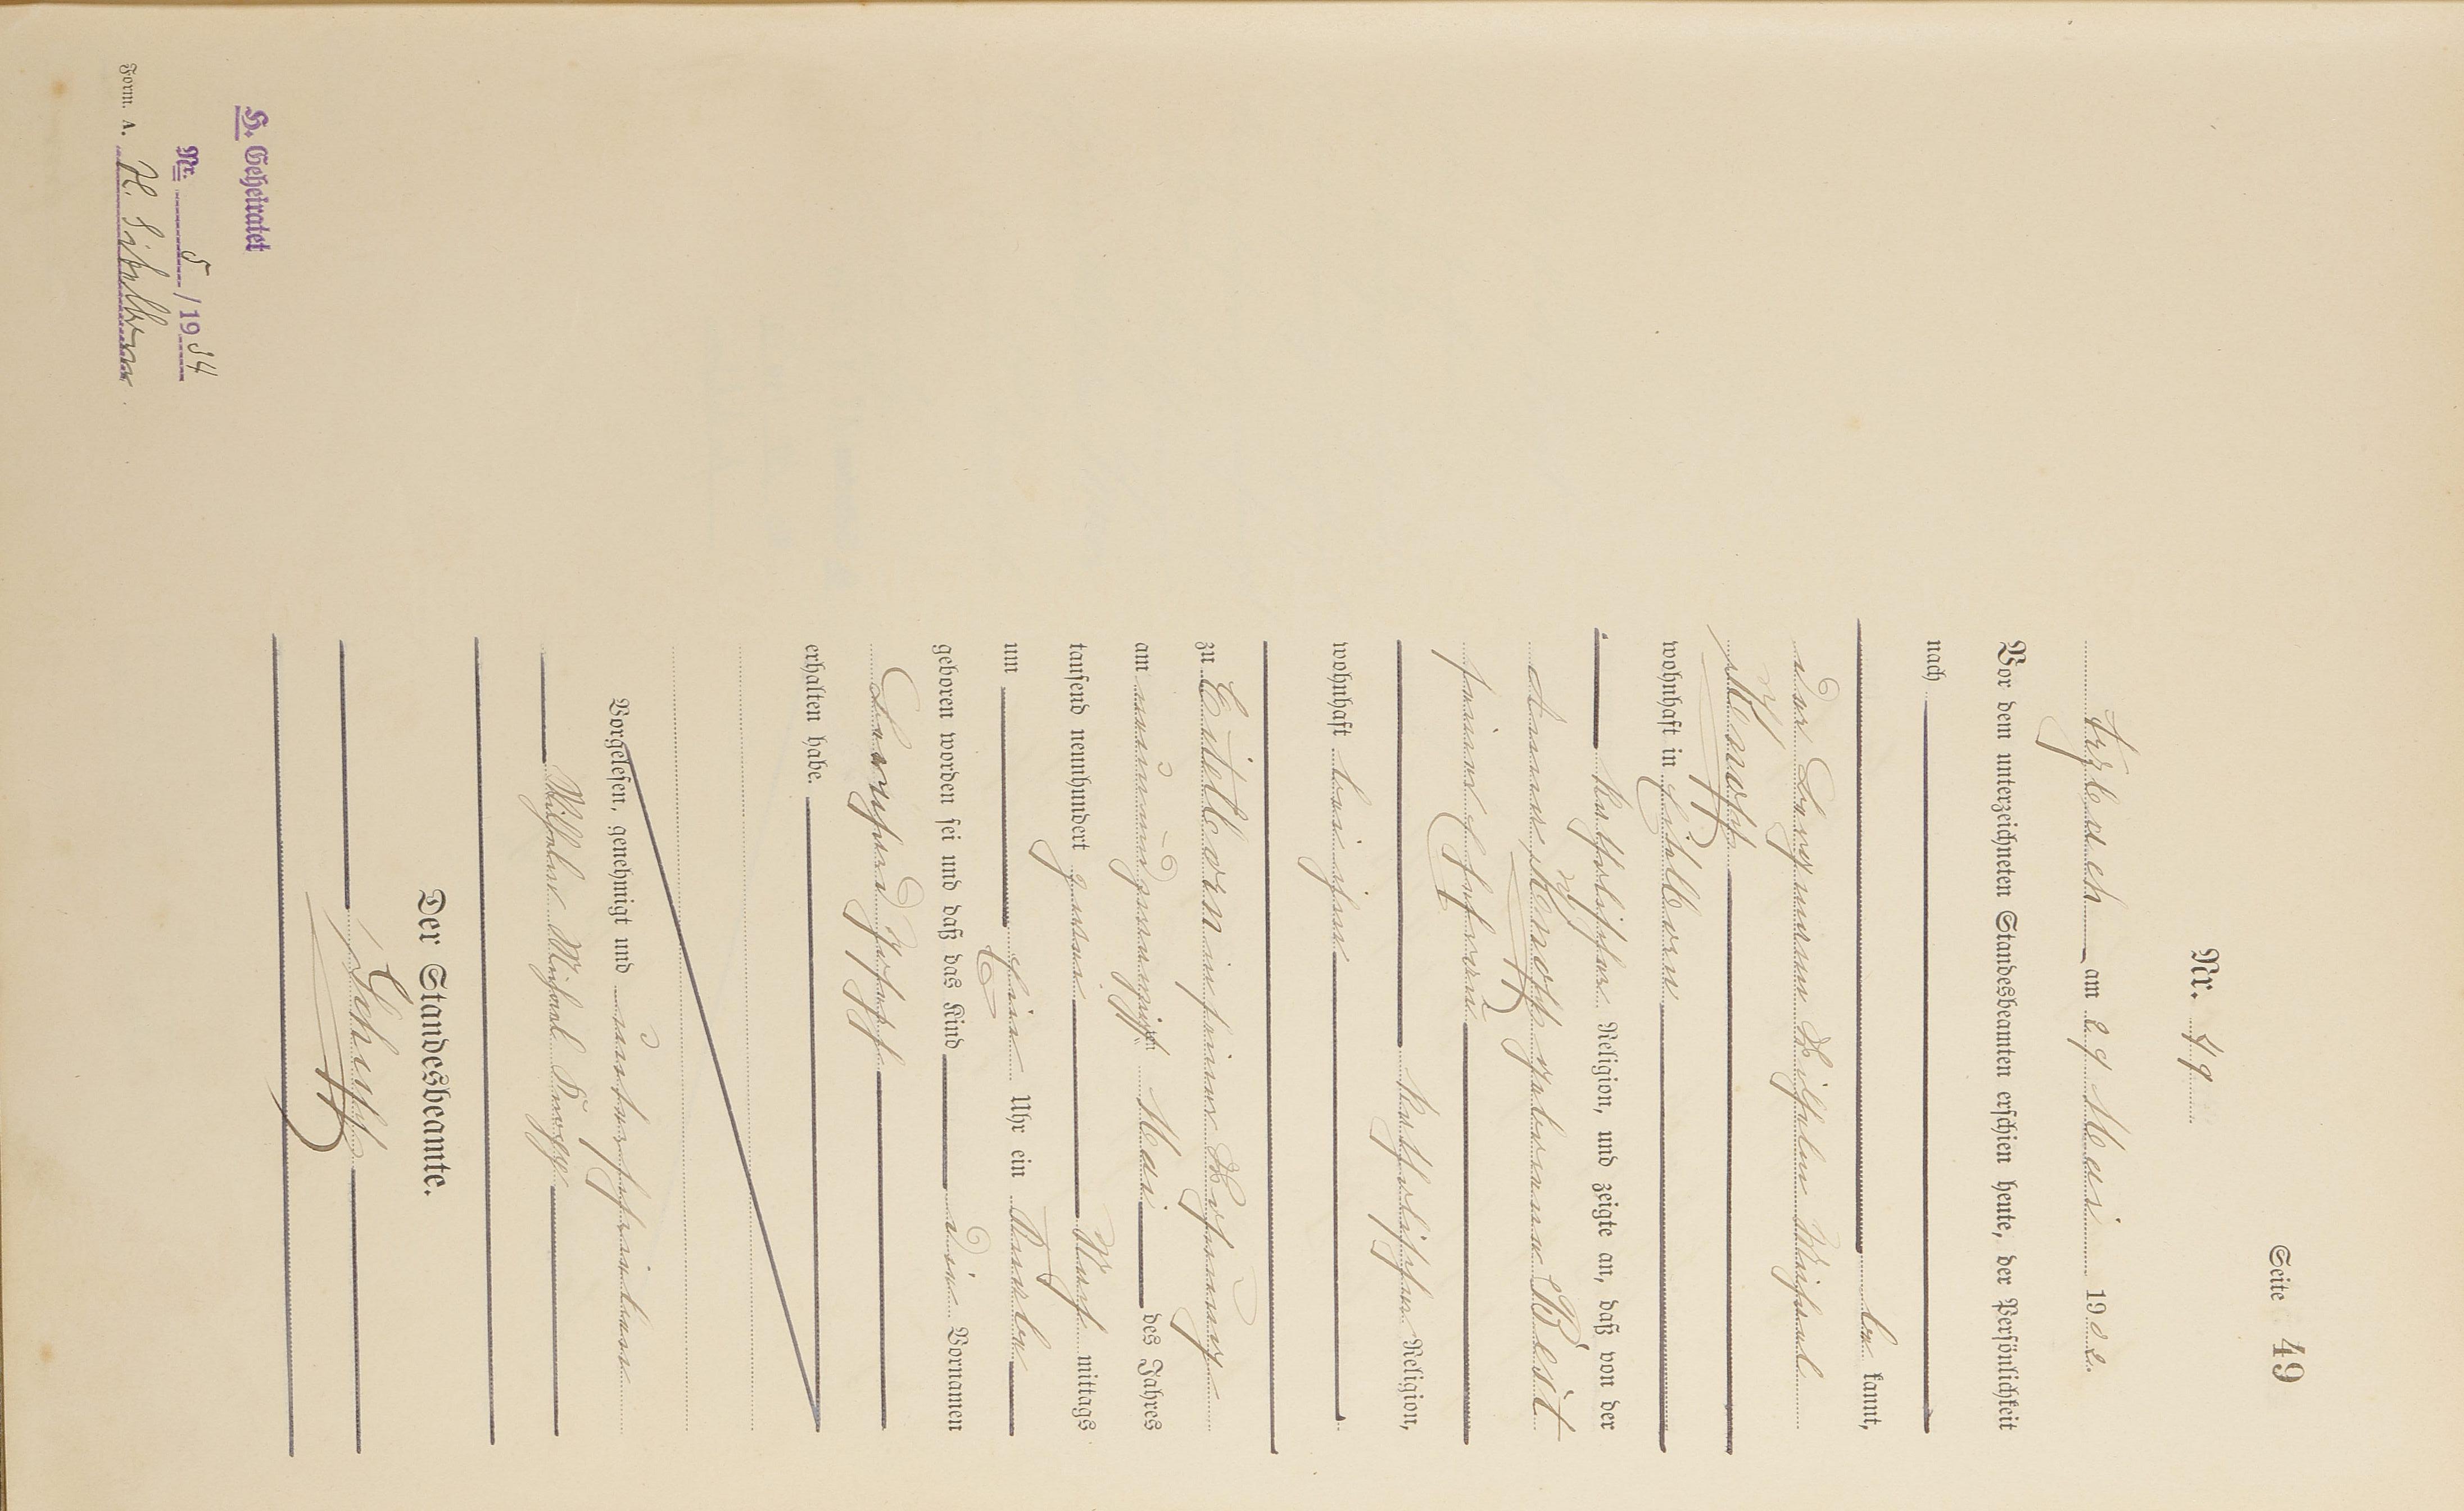 Seite 49
Nr. 49
Arzbach am 29 Mai 1902.
Vor dem unterzeichneten Standesbeamten erschien heute, der Persönlichkeit
nach
be kannt,
der Bergmann Wilhelm Michael
Knopp
wohnhaft in Eitelborn
katholischer Religion, und zeigte an, daß von der
Anna Knopp geborenen Best
seiner Ehefrau
katholischer Religion,
wohnhaft bei ihm
zu Eitelborn in seiner Wohnung
am neunundzwanzigsten Mai des Jahres
tausend neunhundert zwei Nach mittags
um Uhr ein Knabe
geboren worden sei und daß das Kind die Vornamen
Joseph
erhalten habe.
Vorgelesen, genehmigt und unterschrieben
Wilhelm Michael Knopp
Der Standesbeamte.
H. Geheiratet
Nr. 5/1934
H. Eitelborn
Form. A.